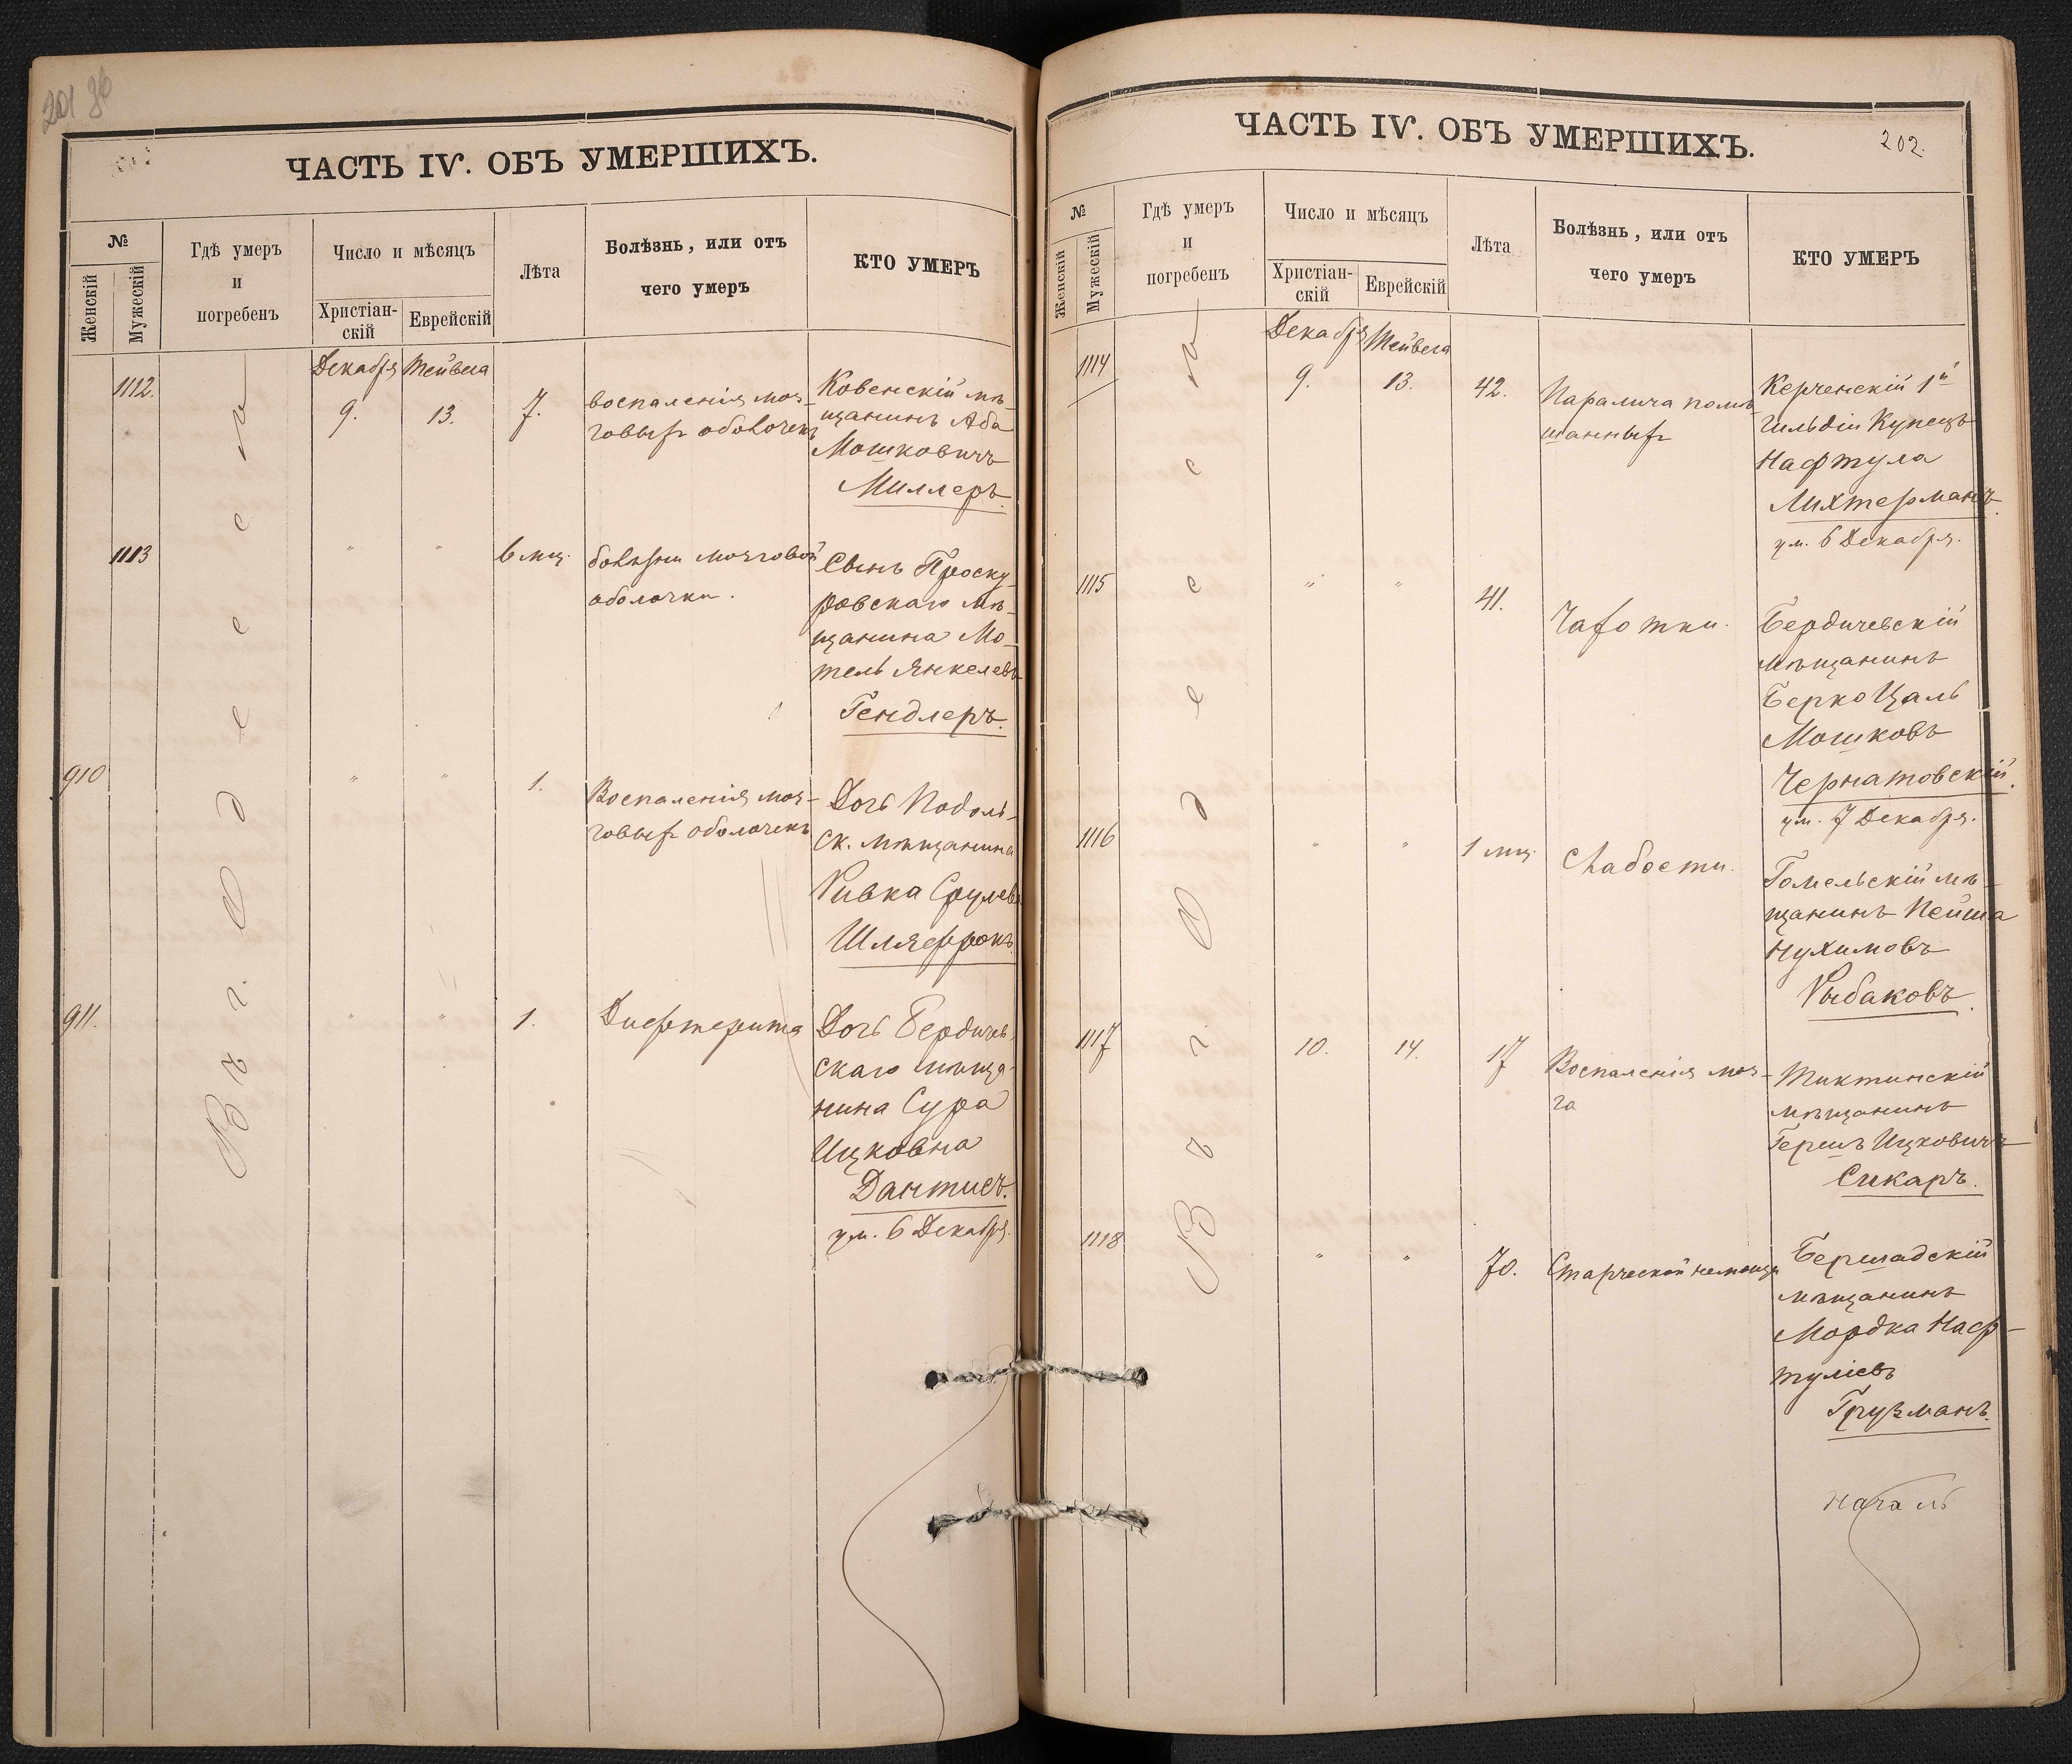 201 зв
ЧАСТЬ IV. ОБЪ УМЕРШИХЪ.
№
Женскій
Мужескій
Гдѣ умеръ
и
погребенъ
Число и мѣсяцъ
Христіан-
скій
Еврейскій
Лѣта
Болѣзнь, или отъ
чего умеръ
КТО УМЕРЪ
Въ г. Одессѣ
Декабря Тейвеса
1112. 9. 13. 7.
воспаленія моз-
говыхъ оболочекъ
Ковенскій мѣ-
щанинъ Аба
Мошковичъ
Миллеръ.
1113 " " 6 мц.
болѣзни мозговой
оболочки.
Сынъ Проску-
ровскаго мѣ-
щанина Мо-
тель Янкелевъ
Гендлеръ.
910 " " 1.
Воспаленія моз-
говыхъ оболочекъ
Дочь Подоль-
ск. мѣщанина
Ривка Срулева
911. " " 1.
Дифтерита
Дочь Бердичев-
скаго мѣща-
нина Сура
Ицковна
Дантисъ.
ум. 6 Декабря.
ЧАСТЬ IV. ОБЪ УМЕРШИХЪ.
202.
№
Женскій
Мужескій
Гдѣ умеръ
и
погребенъ
Число и мѣсяцъ
Христіан-
скій
Еврейскій
Лѣта
Болѣзнь, или отъ
чего умеръ
КТО УМЕРЪ
Въ г. Одессѣ
Декабря Тейвеса
1114 9. 13. 42.
Паралича помѣ-
шанныхъ
Керченскій 1й
гильдіи Купецъ
Нафтула
Лихтерманъ.
ум. 6 Декабря.
1115 " " 41.
Чахотки.
Бердичевскій
мѣщанинъ
Берко Цаль
Мошковъ
Чернатовскій.
ум. 7 Декабря.
1116 " " 1 мц.
Слабости.
Гомельскій мѣ-
щанинъ Пейша
Нухимовъ
Рыбаковъ.
1117 10. 14. 17
Воспаленія моз-
га
Тиктинскій
мѣщанинъ
Гершъ Ицковичъ
Сикаръ.
1118 " " 70.
Старческой немощи
Бершадскій
мѣщанинъ
Мордка Наф-
туліевъ
Грузманъ.